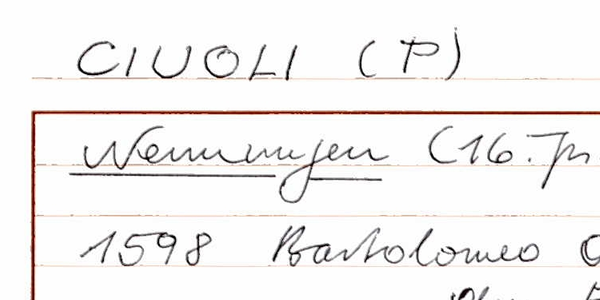 CIUOLI (P)
Nennungen (16. Jh
1598 Bartolomeo